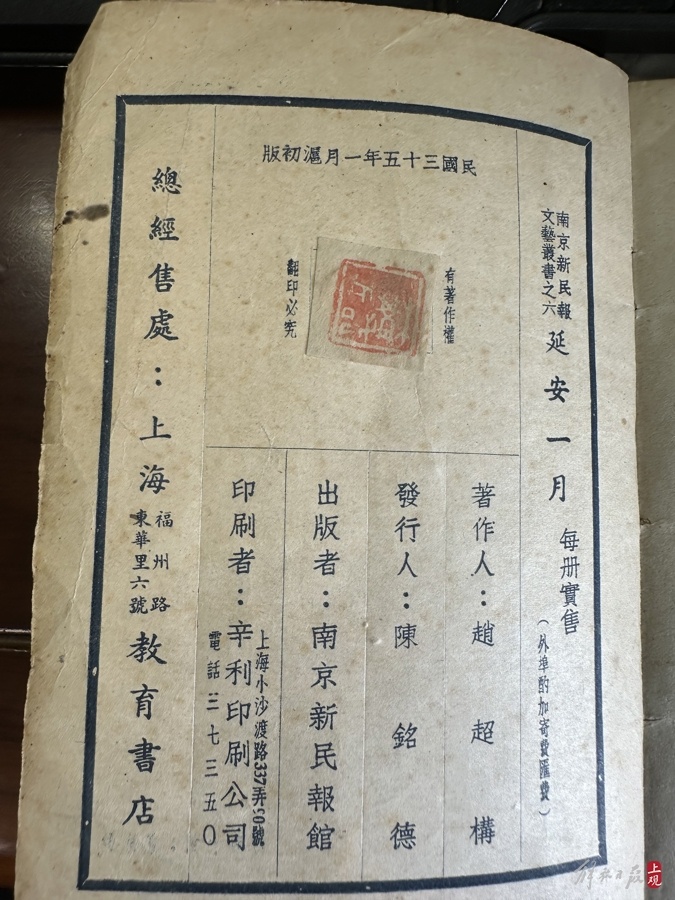 南京新民報
文藝叢書之六
延安一月
每册實售
(外埠酌加寄費匯費)
民國三十五年一月滬初版
有著作權
翻印必究
著作人:趙超構
發行人:陳銘德
出版者:南京新民報館
印刷者:辛利印刷公司
上海小沙渡路337弄號
電話:三七三五〇
總經售處:上海
福州路
東華里六號
教育書店
解放日报
上观